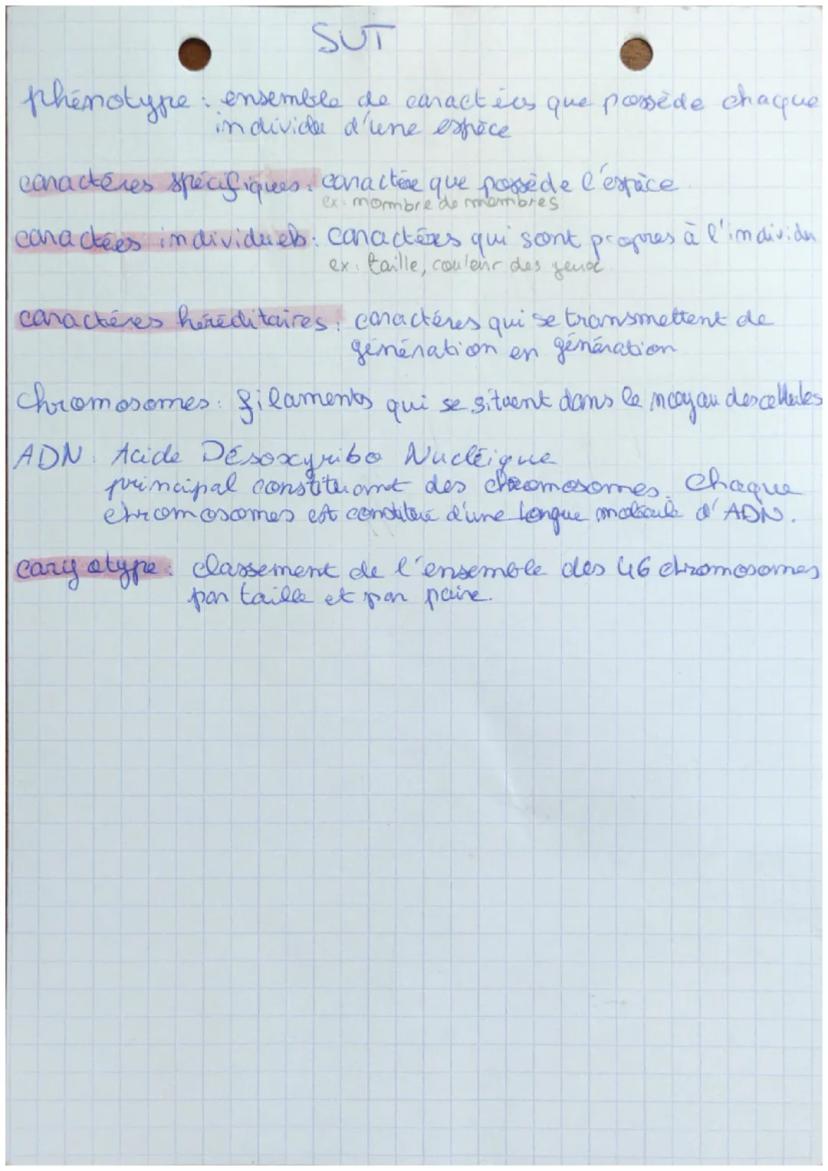 SVT
phénotype : ensemble de caractères que possède chaque
individu d'une espèce
caractères spécifiques : caractère que possède l'espèce
ex : nombre de membres
caractères individuels : caractères qui sont propres à l'individu
ex : taille, couleur des yeux
caractères héréditaires : caractères qui se transmettent de
génération en génération
Chromosomes : filaments qui se situent dans le noyau des cellules
ADN : Acide Désoxyribo Nucléique
principal constituant des chromosomes. Chaque
chromosomes est constitué d'une longue molécule d'ADN.
caryotype : classement de l'ensemble des 46 chromosomes
par taille et par paire.